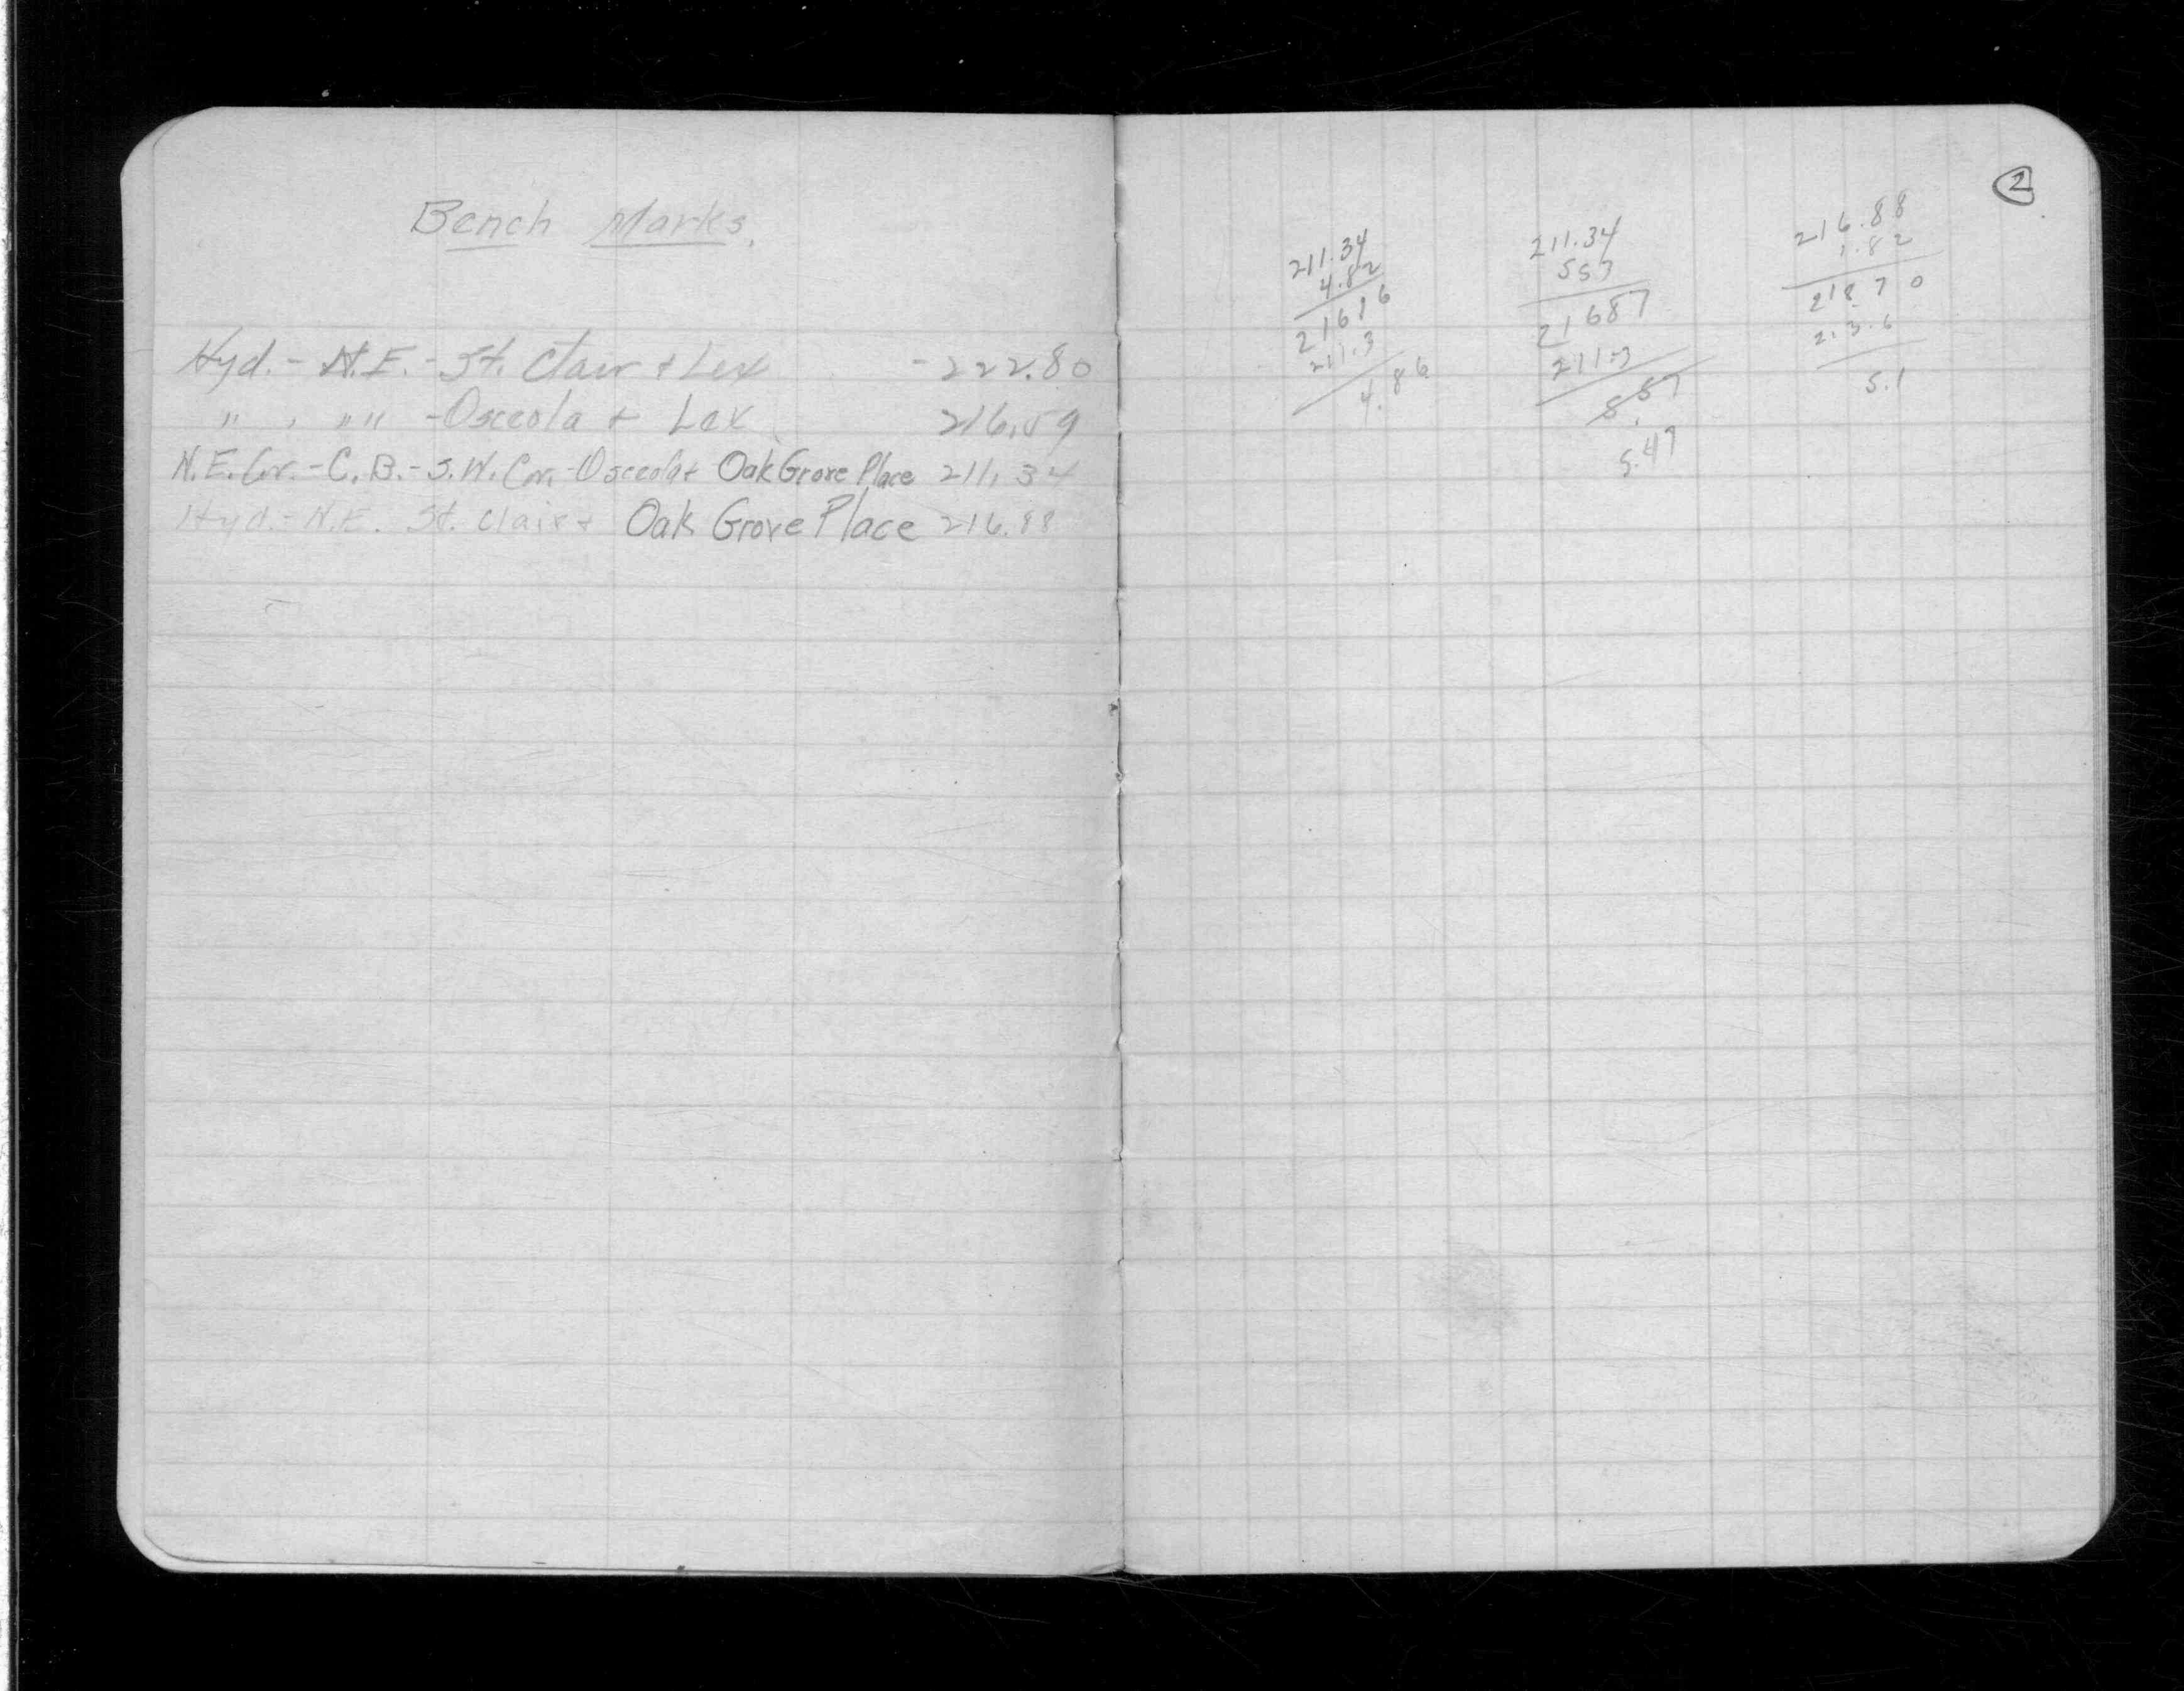 Bench Marks.
Hyd. - N.E. - St. Clair + Lex - 222.80
" , " " - Osceola + Lex 216.59
N.E. Cor. - C.B. - S.W. Cor. - Osceola + Oak Grove Place 211.34
Hyd. - N.E. St. Clair + Oak Grove Place 216.88
2
211.34
4.82
216 16
211.3
4.86
211.34
5 5 3
216 87
211.3
5.57
5.47
216.88
1.82
218.70
213.6
5.1